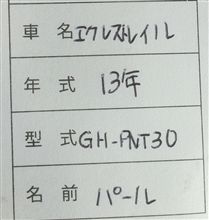 車名 エクレストレイル
年式 13年
型式 GH-PNT30
名前 パール